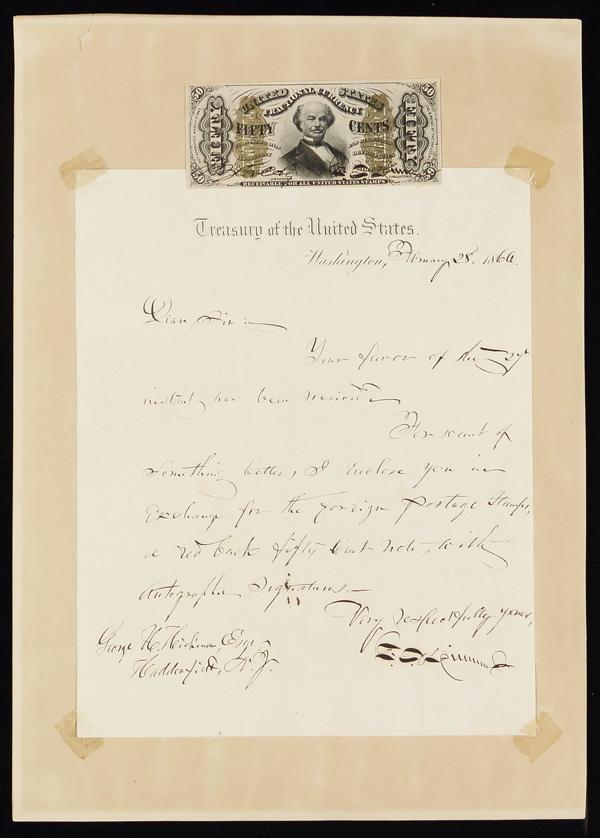 50 50
UNITED STATES
FRACTIONAL CURRENCY
FIFTY CENTS
RECEIVABLE FOR ALL UNITED STATES STAMPS
50 50
Treasury of the United States.
Washington, February 28, 1866.
Dear Sir :
Your favor of the
instant, has been received.
For want of
something better, I enclose you in
exchange for the foreign postage stamps,
a red back fifty cent note, with
Autographic Signatures.
Very respectfully yours,
F. E. Spinner
George H. Hickman, Esqr.
Haddonfield, N. J.